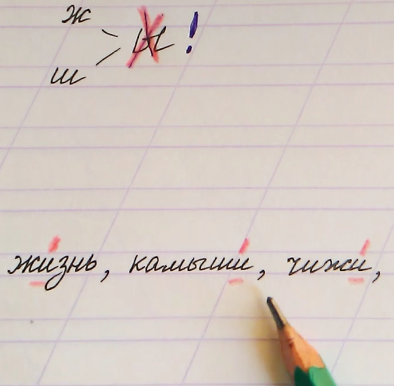 ж
ы!
ш
жизнь, камыши, чижи,